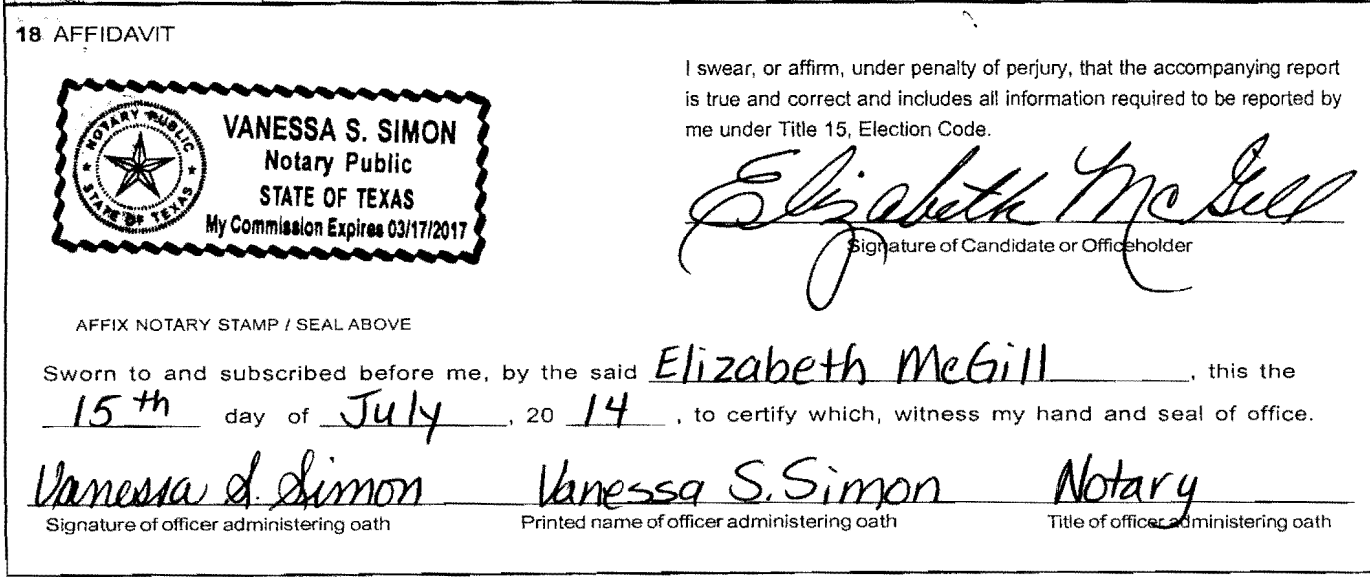 18 AFFIDAVIT
NOTARY PUBLIC
STATE OF TEXAS
VANESSA S. SIMON
Notary Public
STATE OF TEXAS
My Commission Expires 03/17/2017
I swear, or affirm, under penalty of perjury, that the accompanying report
is true and correct and includes all information required to be reported by
me under Title 15, Election Code.
Elizabeth McGill
Signature of Candidate or Officeholder
AFFIX NOTARY STAMP / SEAL ABOVE
Sworn to and subscribed before me, by the said Elizabeth McGill, this the
15th day of July, 20 14, to certify which, witness my hand and seal of office.
Vanessa S. Simon Vanessa S. Simon Notary
Signature of officer administering oath Printed name of officer administering oath Title of officer administering oath